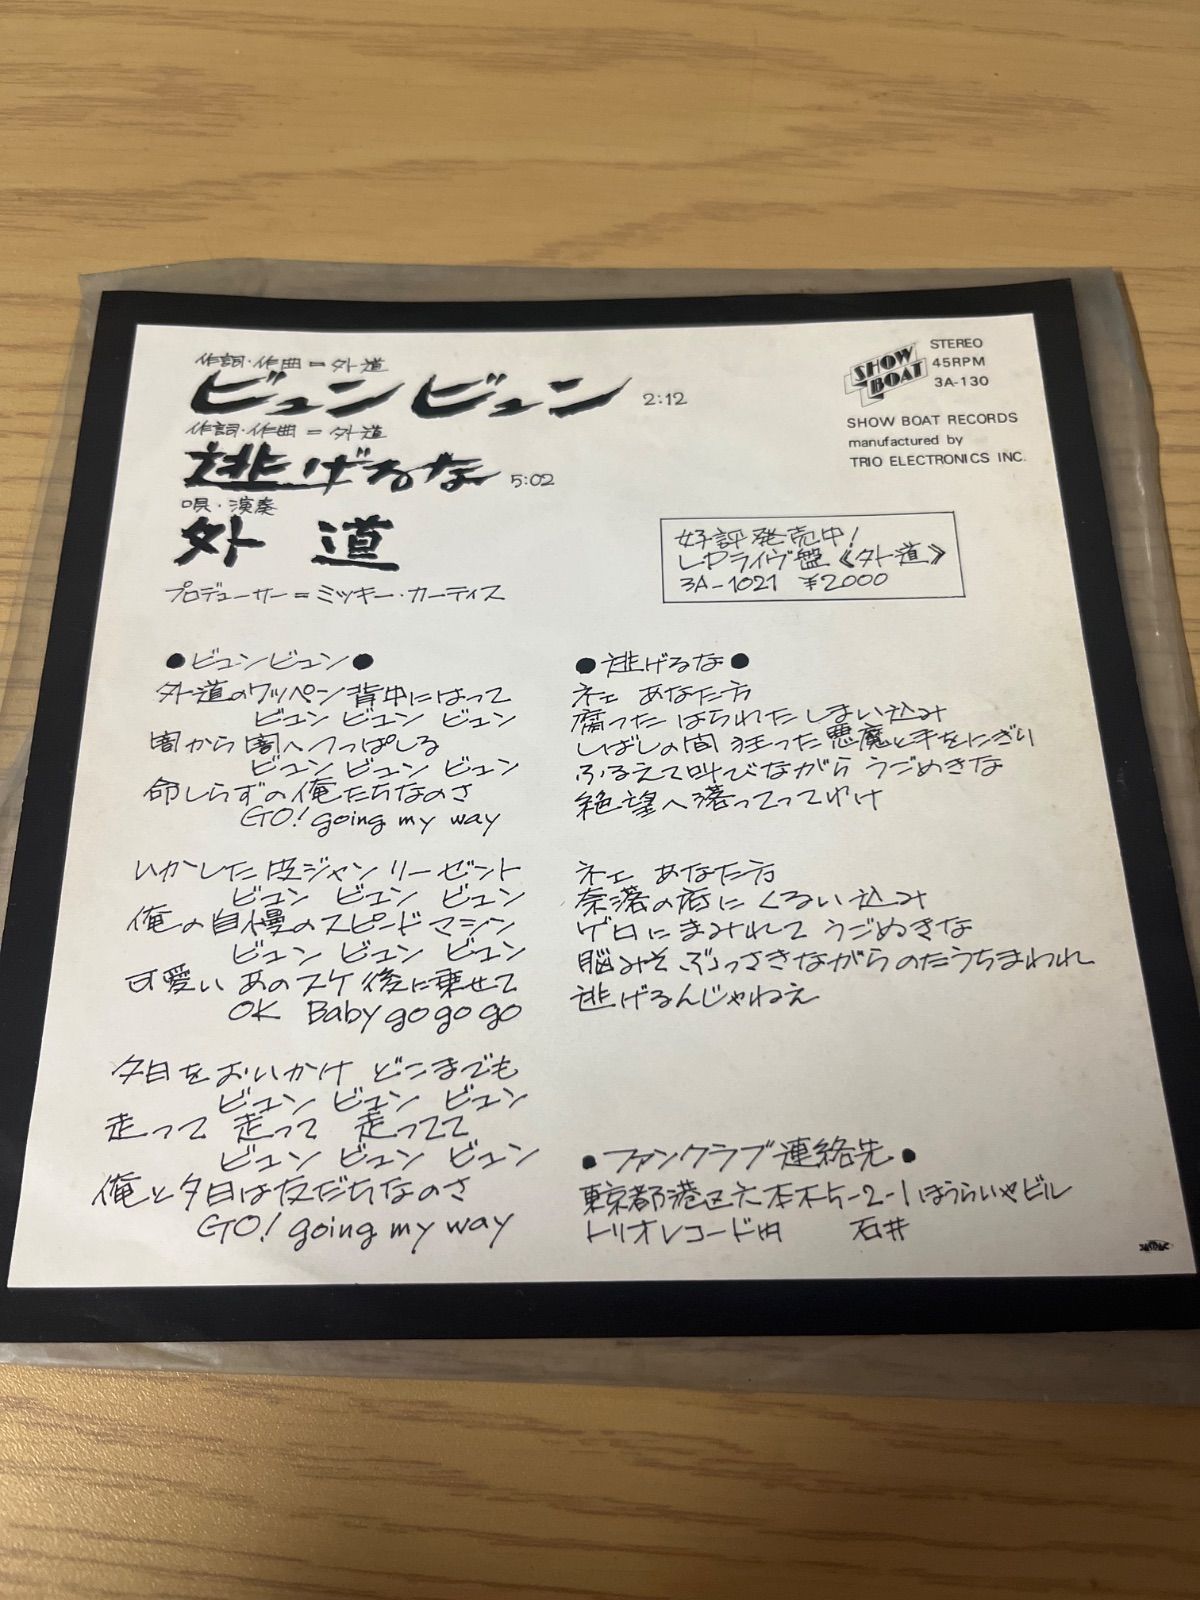 作詞・作曲=外道
ビュンビュン 2:12
作詞・作曲=外道
逃げるな 5:02
唄・演奏
外道
プロデューサー=ミッキー・カーティス
SHOW BOAT
STEREO
45RPM
3A-130
SHOW BOAT RECORDS
manufactured by
TRIO ELECTRONICS INC.
好評発売中!
LPライヴ盤《外道》
3A-1021 ¥2000
●ビュンビュン●
外道のワッペン背中にはって
ビュン ビュン ビュン
闇から闇へつっぱしる
ビュン ビュン ビュン
命しらずの俺たちなのさ
GO! going my way
いかした皮ジャン リーゼント
ビュン ビュン ビュン
俺の自慢のスピードマシン
ビュン ビュン ビュン
可愛い あのスケ 後に乗せて
OK Baby go go go
夕日をおいかけ どこまでも
ビュン ビュン ビュン
走って 走って 走ってて
ビュン ビュン ビュン
俺と夕日は友だちなのさ
GO! going my way
●逃げるな●
ネェ あなた方
腐った はられた しまい込み
しばしの間 狂った悪魔と手をにぎり
ふるえて叫びながら うごめきな
絶望へ落ってってゆけ
ネェ あなた方
奈落の底に くるい込み
ゲロにまみれて うごめきな
脳みそ ぶっさきながらのたうちまわれ
逃げるんじゃねえ
●ファンクラブ連絡先●
東京都港区六本木5-2-1ほうらいやビル
トリオレコード内 石井